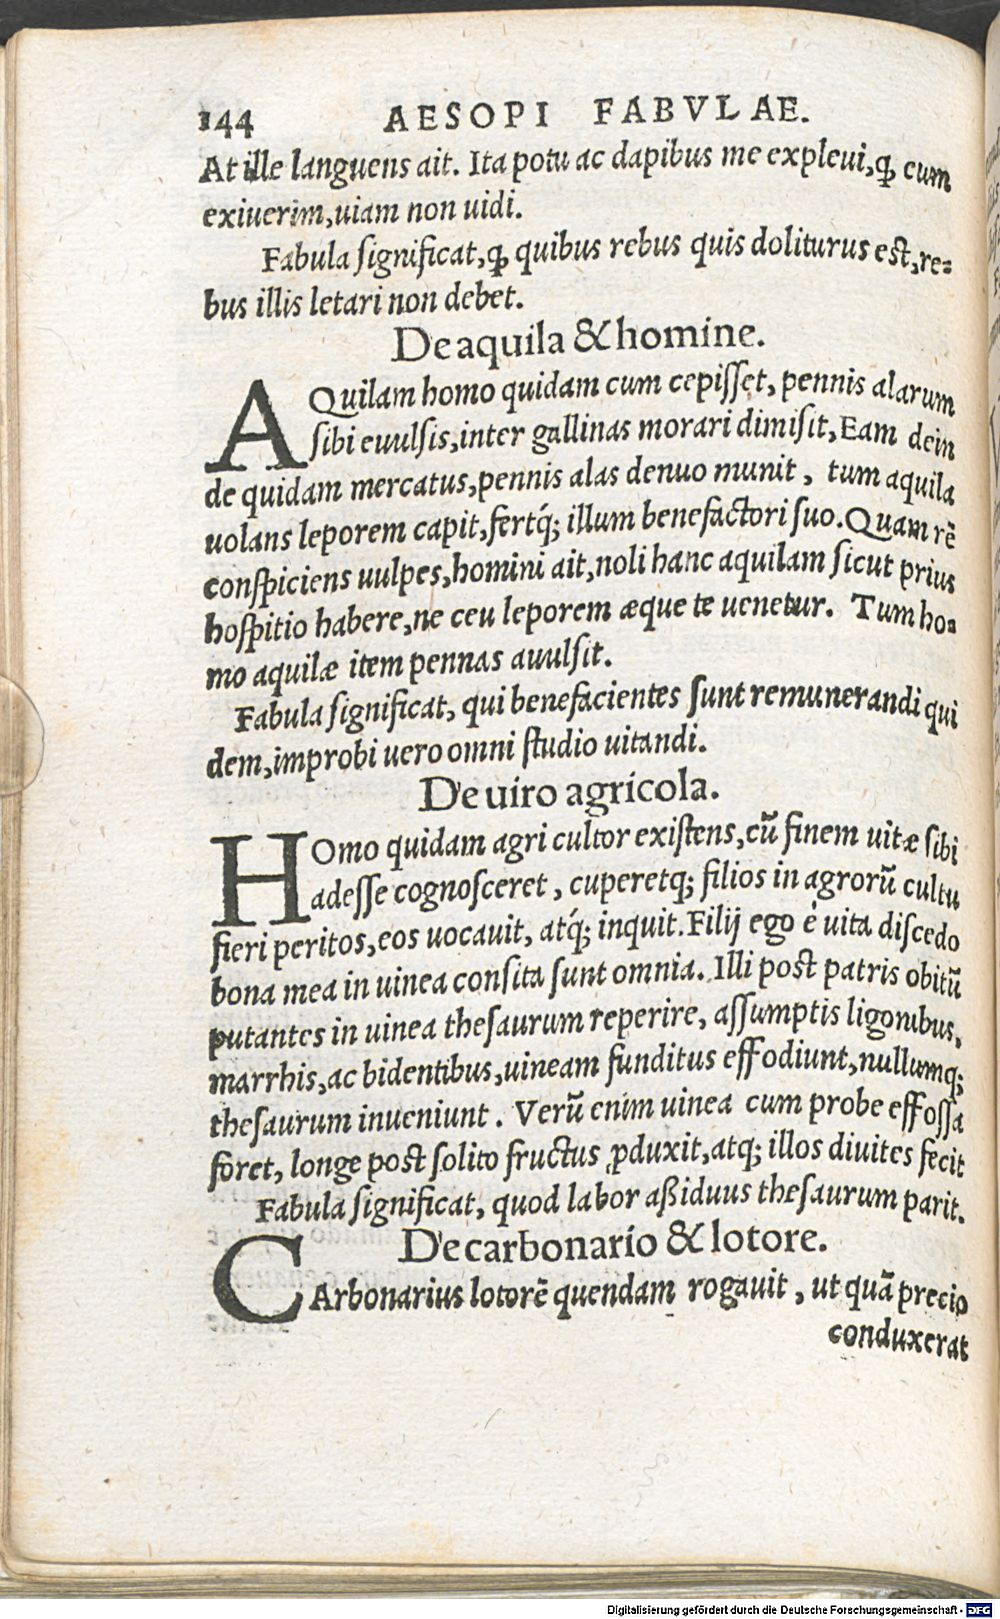 144 AESOPI FABVLAE.
At ille languens ait. Ita potu ac dapibus me expleui,ꝙ cum
exiuerim,uiam non uidi.
Fabula significat,ꝙ quibus rebus quis doliturus est,re=
bus illis letari non debet.
De aquila & homine.
AQuilam homo quidam cum cepisset, pennis alarum
sibi euulsis,inter gallinas morari dimisit,Eam dein
de quidam mercatus,pennis alas denuo munit, tum aquila
uolans leporem capit,fertq́; illum benefactori suo.Quam rē
conspiciens uulpes,homini ait,noli hanc aquilam sicut prius
hospitio habere,ne ceu leporem æque te uenetur. Tum ho=
mo aquilæ item pennas auulsit.
Fabula significat, qui benefacientes sunt remunerandi qui
dem,improbi uero omni studio uitandi.
De uiro agricola.
HOmo quidam agri cultor existens,cū finem uitæ sibi
adesse cognosceret, cuperetq; filios in agrorū cultu
fieri peritos,eos uocauit, atq́; inquit.Filij ego è uita discedo
bona mea in uinea consita sunt omnia. Illi post patris obitū
putantes in uinea thesaurum reperire, assumptis ligonibus,
marrhis,ac bidentibus,uineam funditus effodiunt,nullumq;
thesaurum inueniunt. Verū enim uinea cum probe effossa
foret, longe post solito fructus ꝓduxit,atq; illos diuites fecit
Fabula significat, quod labor aßiduus thesaurum parit.
De carbonario & lotore.
CArbonarius lotorē quendam rogauit, ut quā precio
conduxerat
Digitalisierung gefördert durch die Deutsche Forschungsgemeinschaft - DFG